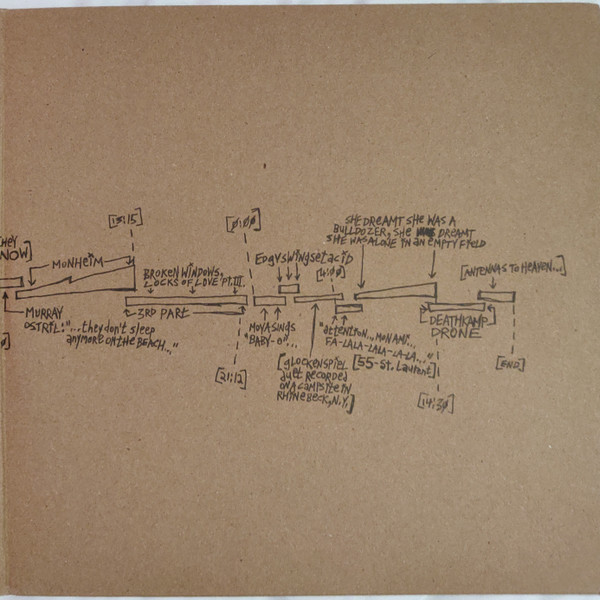 [13:15]
[0:00]
SHE DREAMT SHE WAS A
BULLDOZER, SHE DREAMT
SHE WAS ALONE IN AN EMPTY FIELD
THEY
NOW]
MONHEIM
BROKEN WINDOWS,
LOCKS OF LOVE PT.III.
EDgyswingsetacid
[4:00]
[ANTENNAS TO HEAVEN...]
MURRAY
OSTRIL: "...they don't sleep
anymore on the BEACH..."
3RD PART
MOYA SINGS
"BABY-O"...
"attention... mon ami...
FA-LALA-LALA-LA-LA..."
[55-St. Laurent]
DEATHKAMP
DRONE
[gLOCKENSPIEL
duet RECORDED
ON A CAMPSITE IN
RHINEBECK, N.Y.]
[21:12]
[14:30]
[END]